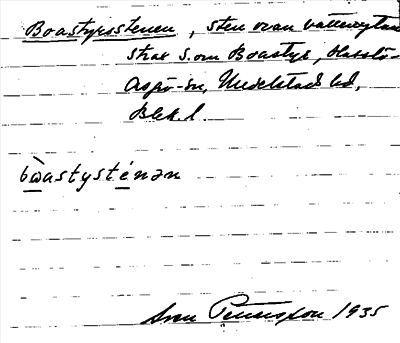 Boastyrsstenen, sten ovan vattenytan
strax S. om Boastyr, Hasslö-
Aspö-sn, Medelstads hd,
Blek. l.
bòastysténən
Sven Petersson 1935